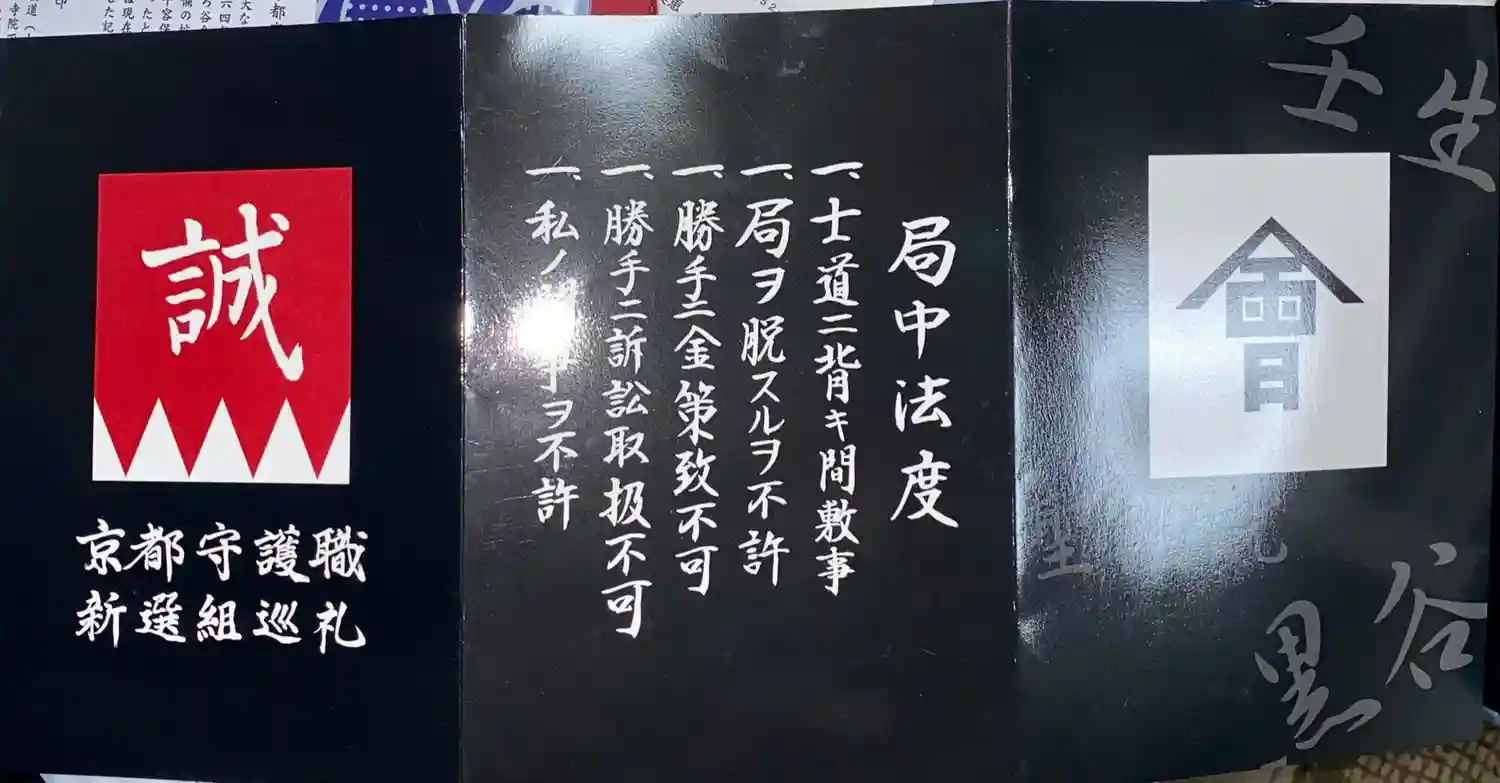 誠
京都守護職
新選組巡礼
局中法度
一、士道ニ背キ間敷事
一、局ヲ脱スルヲ不許
一、勝手ニ金策致不可
一、勝手ニ訴訟取扱不可
一、私ノ
ヲ不許
會
壬生
黒谷